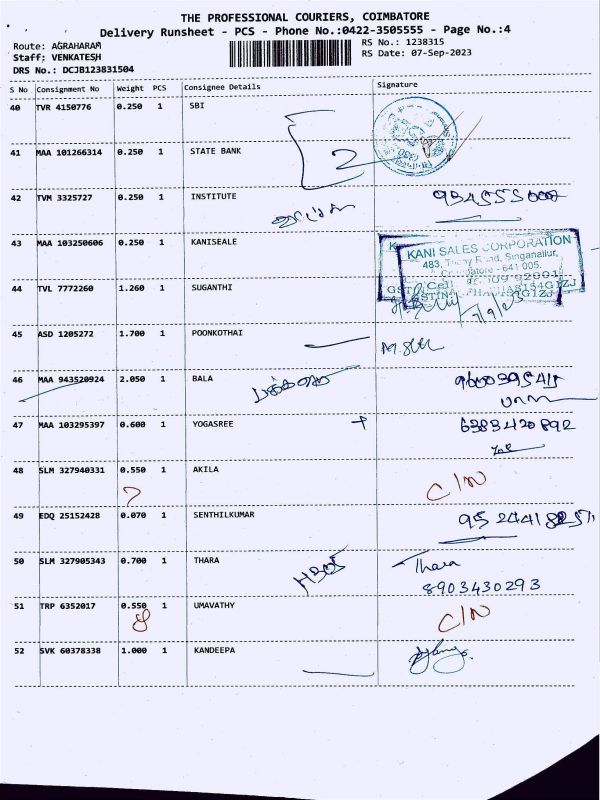 THE PROFESSIONAL COURIERS, COIMBATORE
Delivery Runsheet - PCS - Phone No.:0422-3505555 - Page No.:4
Route: AGRAHARAM
Staff: VENKATESH
DRS No.: DCJB123831504
RS No.: 1238315
RS Date: 07-Sep-2023
S No Consignment No Weight PCS Consignee Details Signature
40 TVR 4150776 0.250 1 SBI
41 MAA 101266314 0.250 1 STATE BANK 2
42 TVM 3325727 0.250 1 INSTITUTE
43 MAA 103250606 0.250 1 KANISEALE
KANI SALES CORPORATION
Singanallur,
641 005.
44 TVL 7772260 1.260 1 SUGANTHI
45 ASD 1205272 1.700 1 POONKOTHAI
46 MAA 943520924 2.050 1 BALA
47 MAA 103295397 0.600 1 YOGASREE 6383420892
48 SLM 327940331 0.550 1 AKILA C/N
49 EDQ 25152428 0.070 1 SENTHILKUMAR
50 SLM 327905343 0.700 1 THARA Thara
8903430293
51 TRP 6352017 0.550 1 UMAVATHY C/N
8
52 SVK 60378338 1.000 1 KANDEEPA